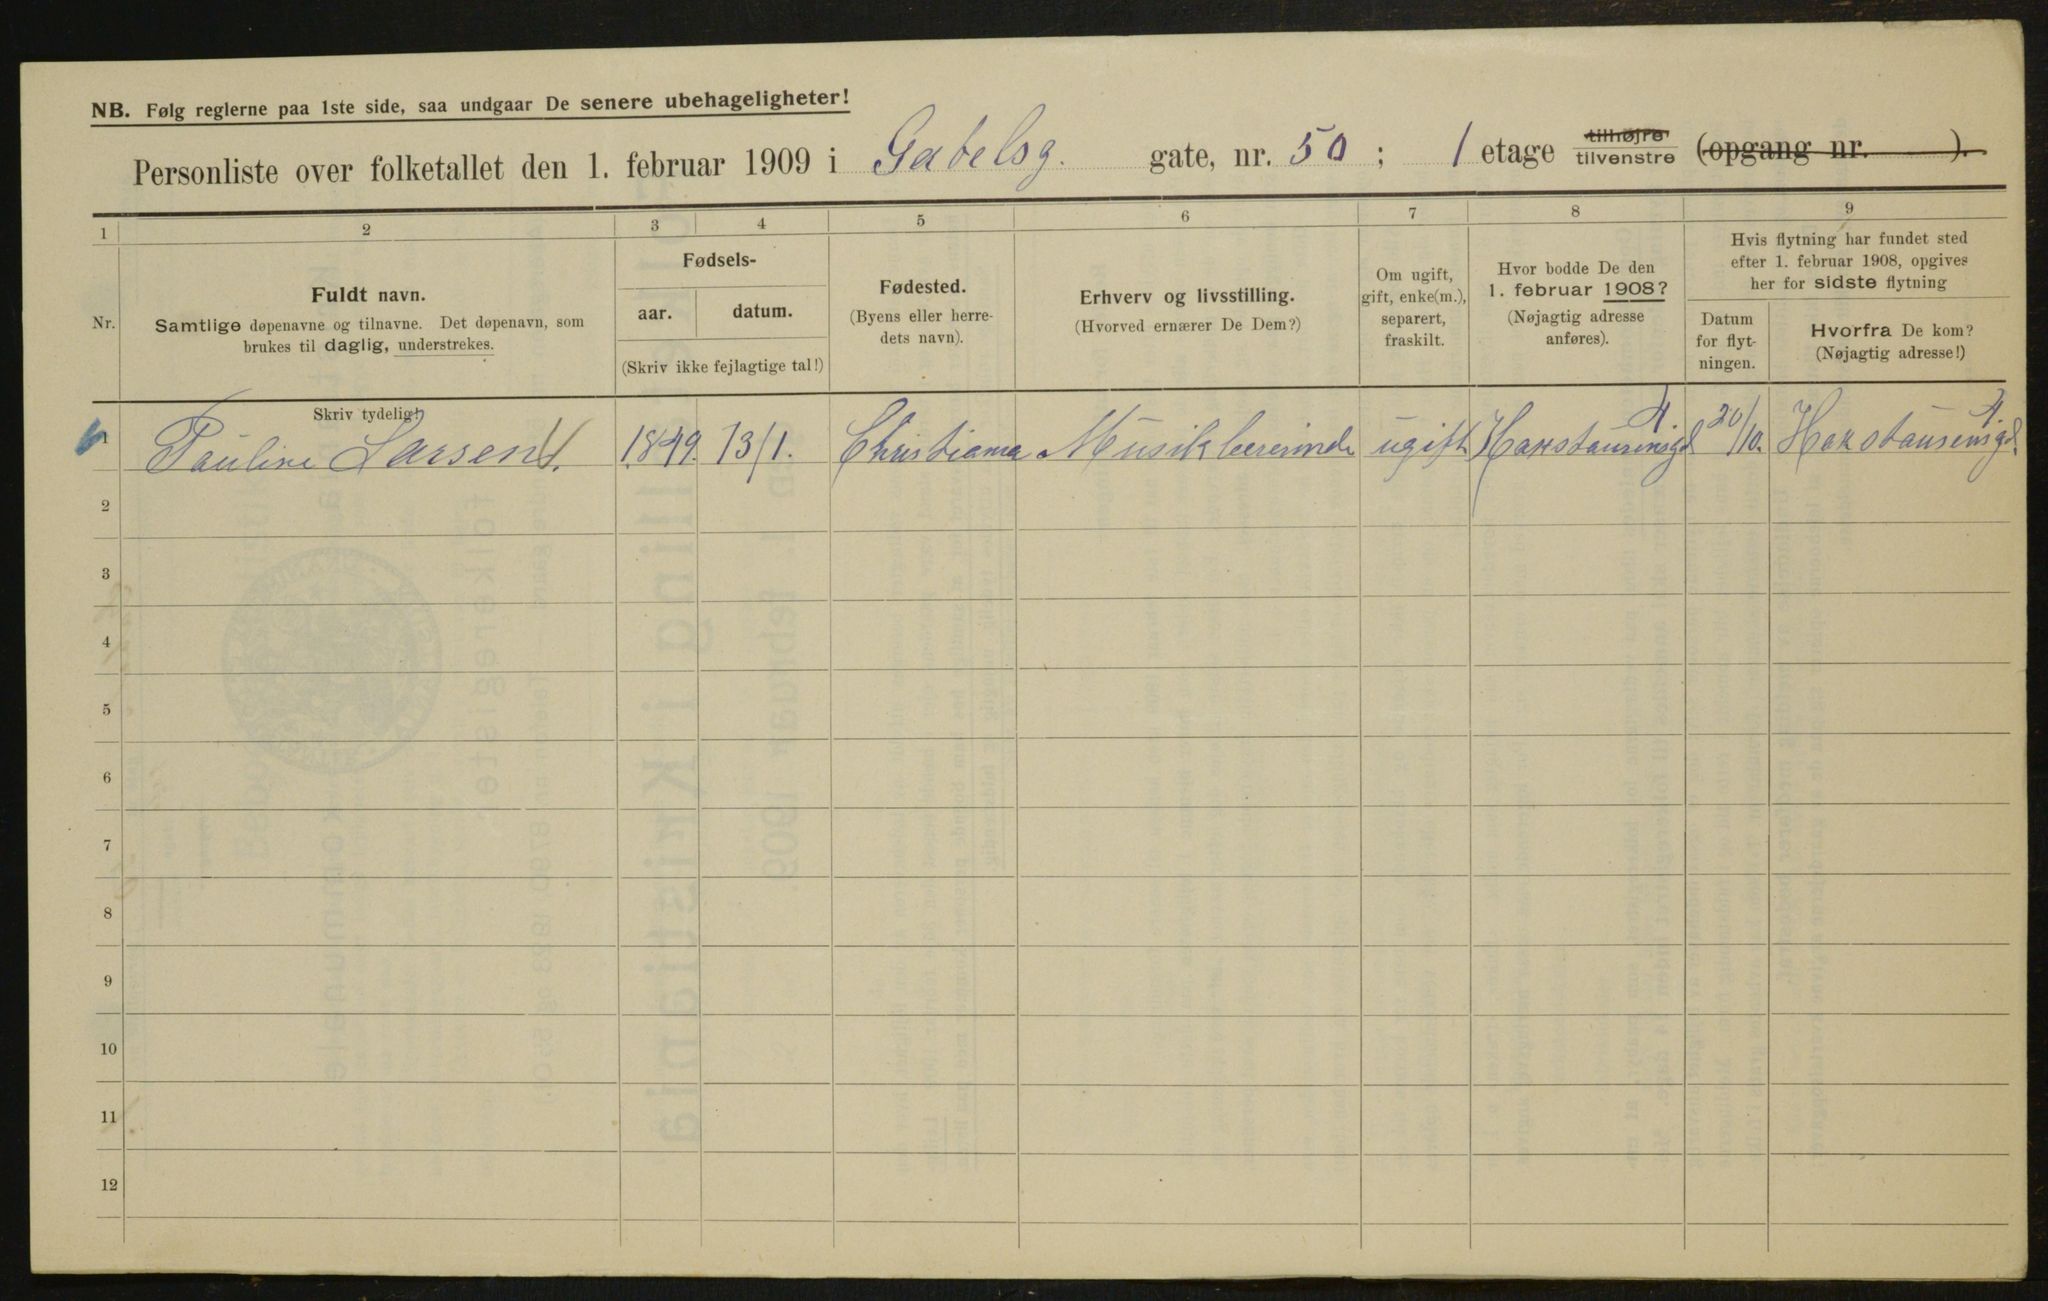 NB. Følg reglerne paa 1ste side, saa undgaar De senere ubehageligheter!
Personliste over folketallet den 1. februar 1909 i Gabelsg. gate, nr. 50; 1 etage tilhøjre tilvenstre (opgang nr. ).
1 2 3 4 5 6 7 8 9
Nr.
Fuldt navn.
Samtlige døpenavne og tilnavne. Det døpenavn, som
brukes til daglig, understrekes.
Fødsels-
aar. datum.
(Skriv ikke fejlagtige tal!)
Fødested.
(Byens eller herre-
dets navn).
Erhverv og livsstilling.
(Hvorved ernærer De Dem?)
Om ugift,
gift, enke(m.),
separert,
fraskilt.
Hvor bodde De den
1. februar 1908?
(Nøjagtig adresse
anføres).
Hvis flytning har fundet sted
efter 1. februar 1908, opgives
her for sidste flytning
Datum
for flyt-
ningen.
Hvorfra De kom?
(Nøjagtig adresse!)
Skriv tydelig!
1 Pauline Larsen 1849. 13/1. Christiania Musiklærerinde ugift 20/10.
2
3
4
5
6
7
8
9
10
11
12